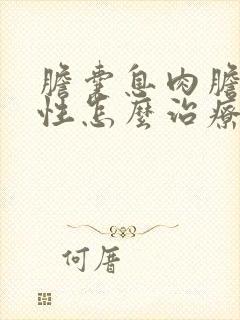 膽囊息肉膽
性怎麼治療
何厝